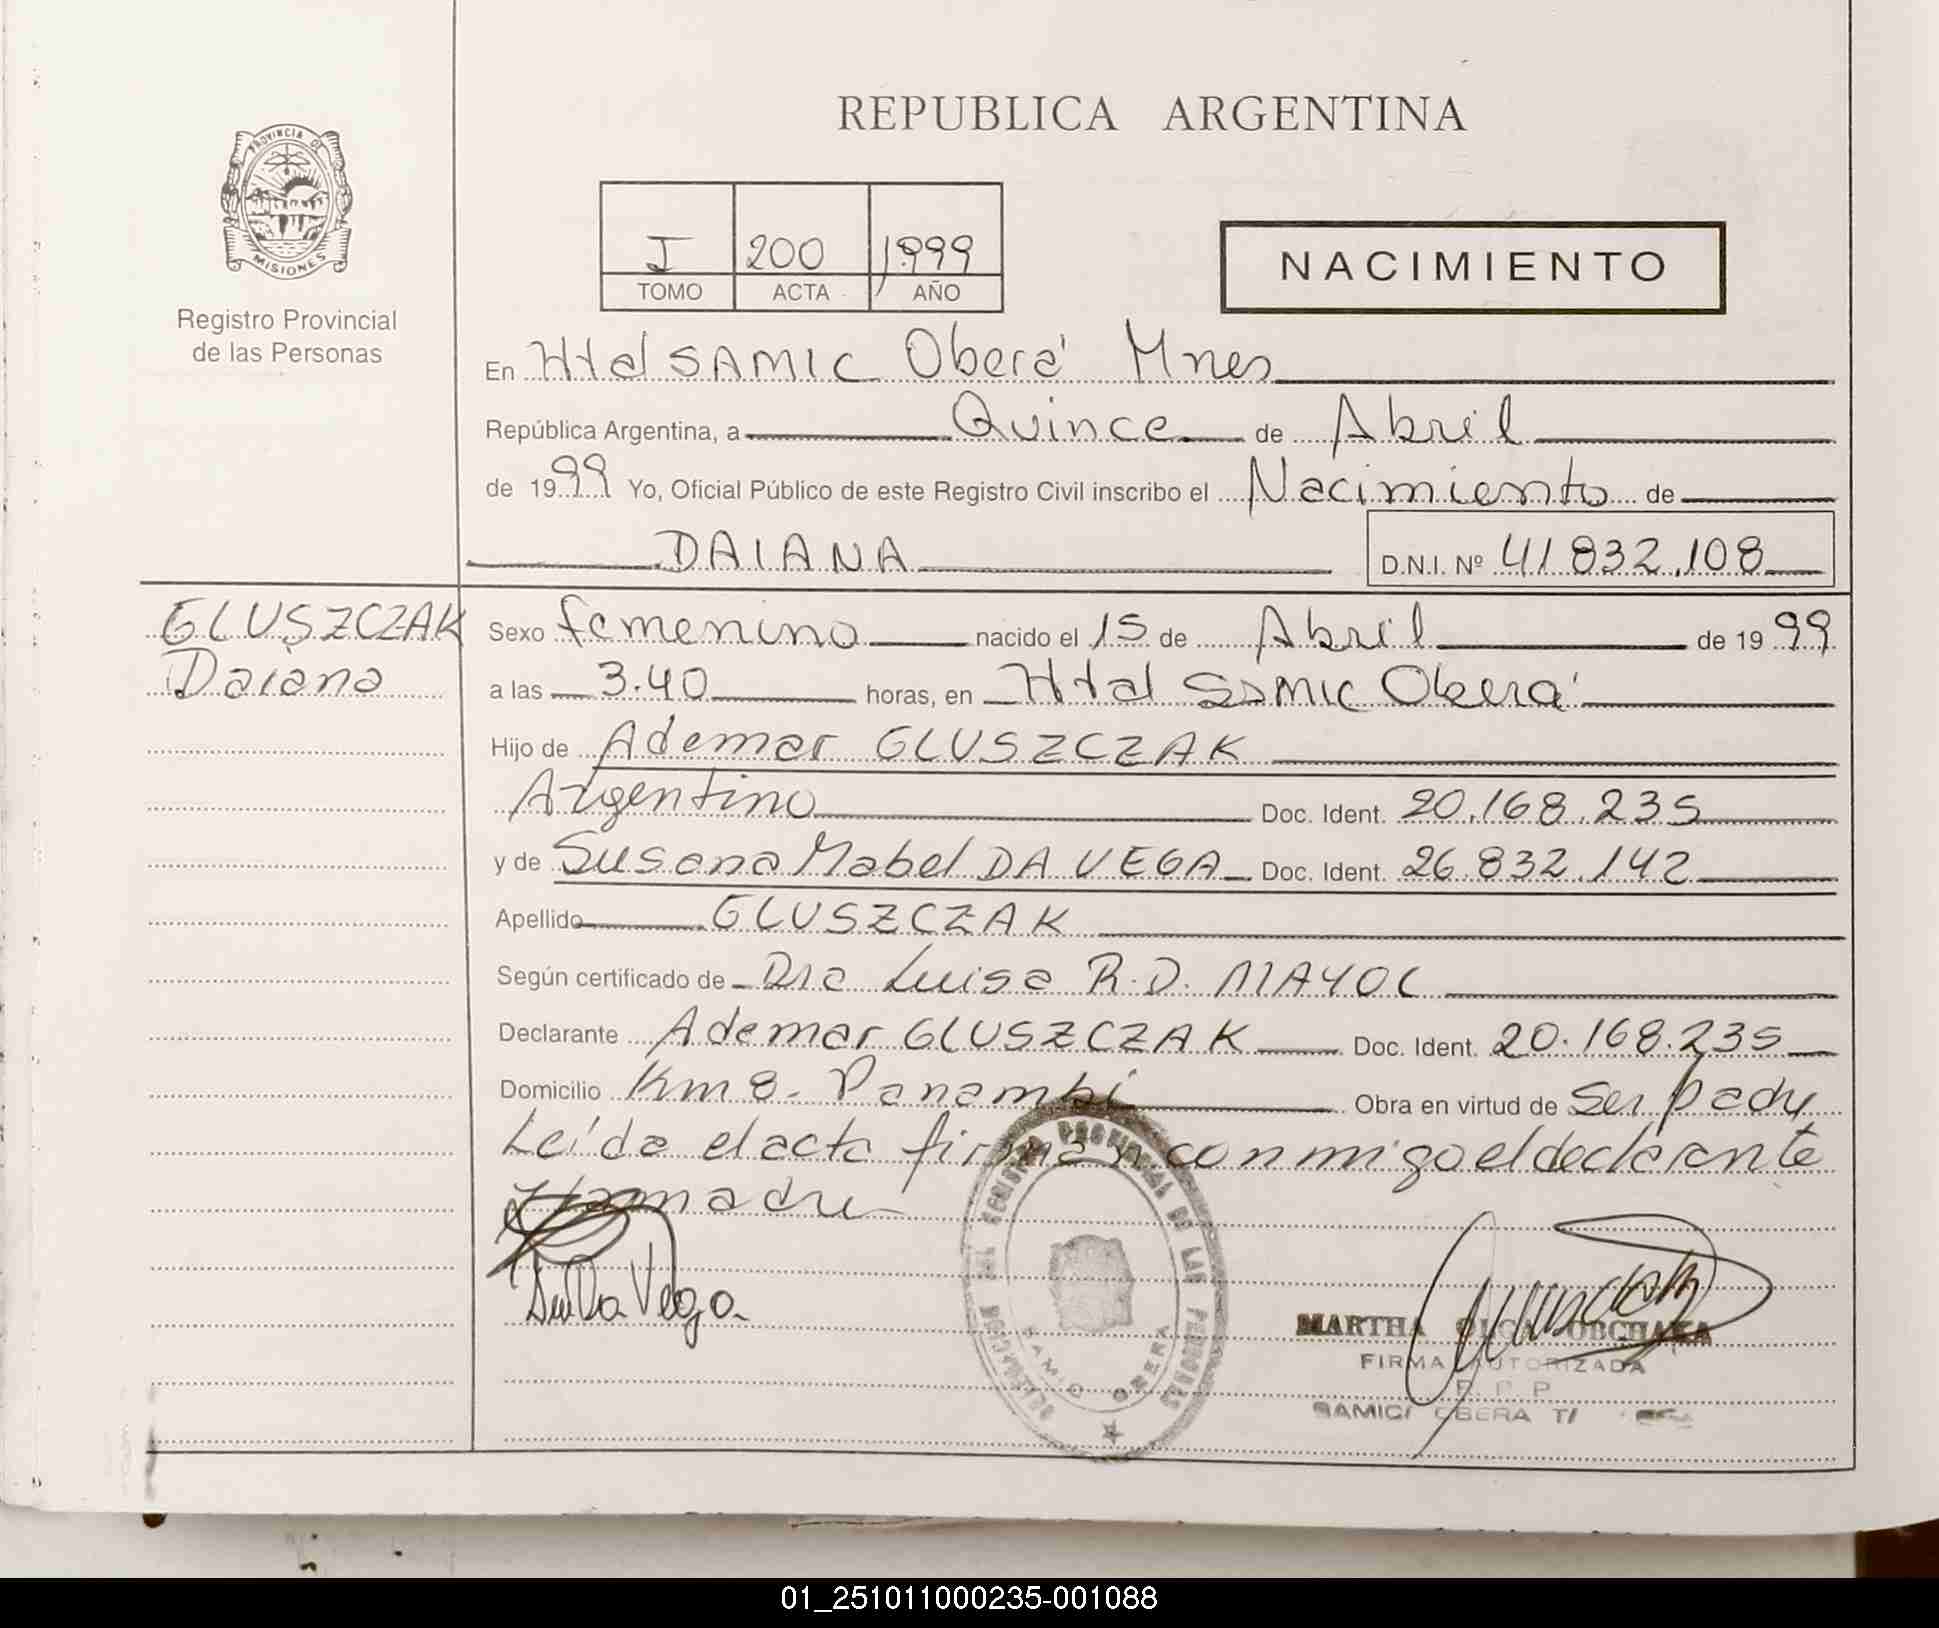 REPUBLICA ARGENTINA
PROVINCIA DE
MISIONES
Registro Provincial
de las Personas
I 200 1999
TOMO ACTA AÑO
NACIMIENTO
En Htal SAMIC Oberá Mnes
República Argentina, a Quince de Abril
de 1999 Yo, Oficial Público de este Registro Civil inscribo el Nacimiento de
DAIANA D.N.I. Nº 41832.108
GLUSZCZAK
Daiana
Sexo femenino nacido el 15 de Abril de 1999
a las 3.40 horas, en Htal SAMIC Oberá
Hijo de Ademar GLUSZCZAK
Argentino Doc. Ident. 20.168.235
y de Susana Mabel DA VEGA Doc. Ident. 26.832.142
Apellido GLUSZCZAK
Según certificado de Dra Luisa R.D. MAYOL
Declarante Ademar GLUSZCZAK Doc. Ident. 20.168.235
Domicilio Km 8. Panambí Obra en virtud de ser padre
Leída el acta firman conmigo el declarante
y la madre
Da Vega
PROVINCIAL DE LAS PERSONAS
SAMIC OBERA
MARTHA OLGA
FIRMA AUTORIZADA
R. P. P.
SAMIC OBERA
01_251011000235-001088